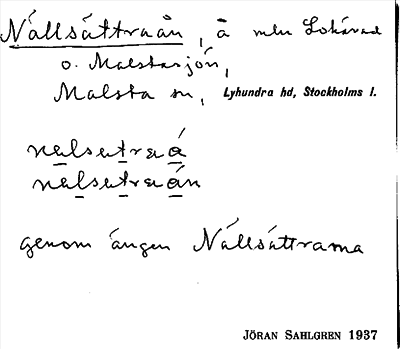 Nällsättraån, å mln Lohärad
o. Malstasjön,
Malsta sn, Lyhundra hd, Stockholms l.
nælsætræå
nælsætræån
genom ängen Nällsättrarna
JÖRAN SAHLGREN 1937